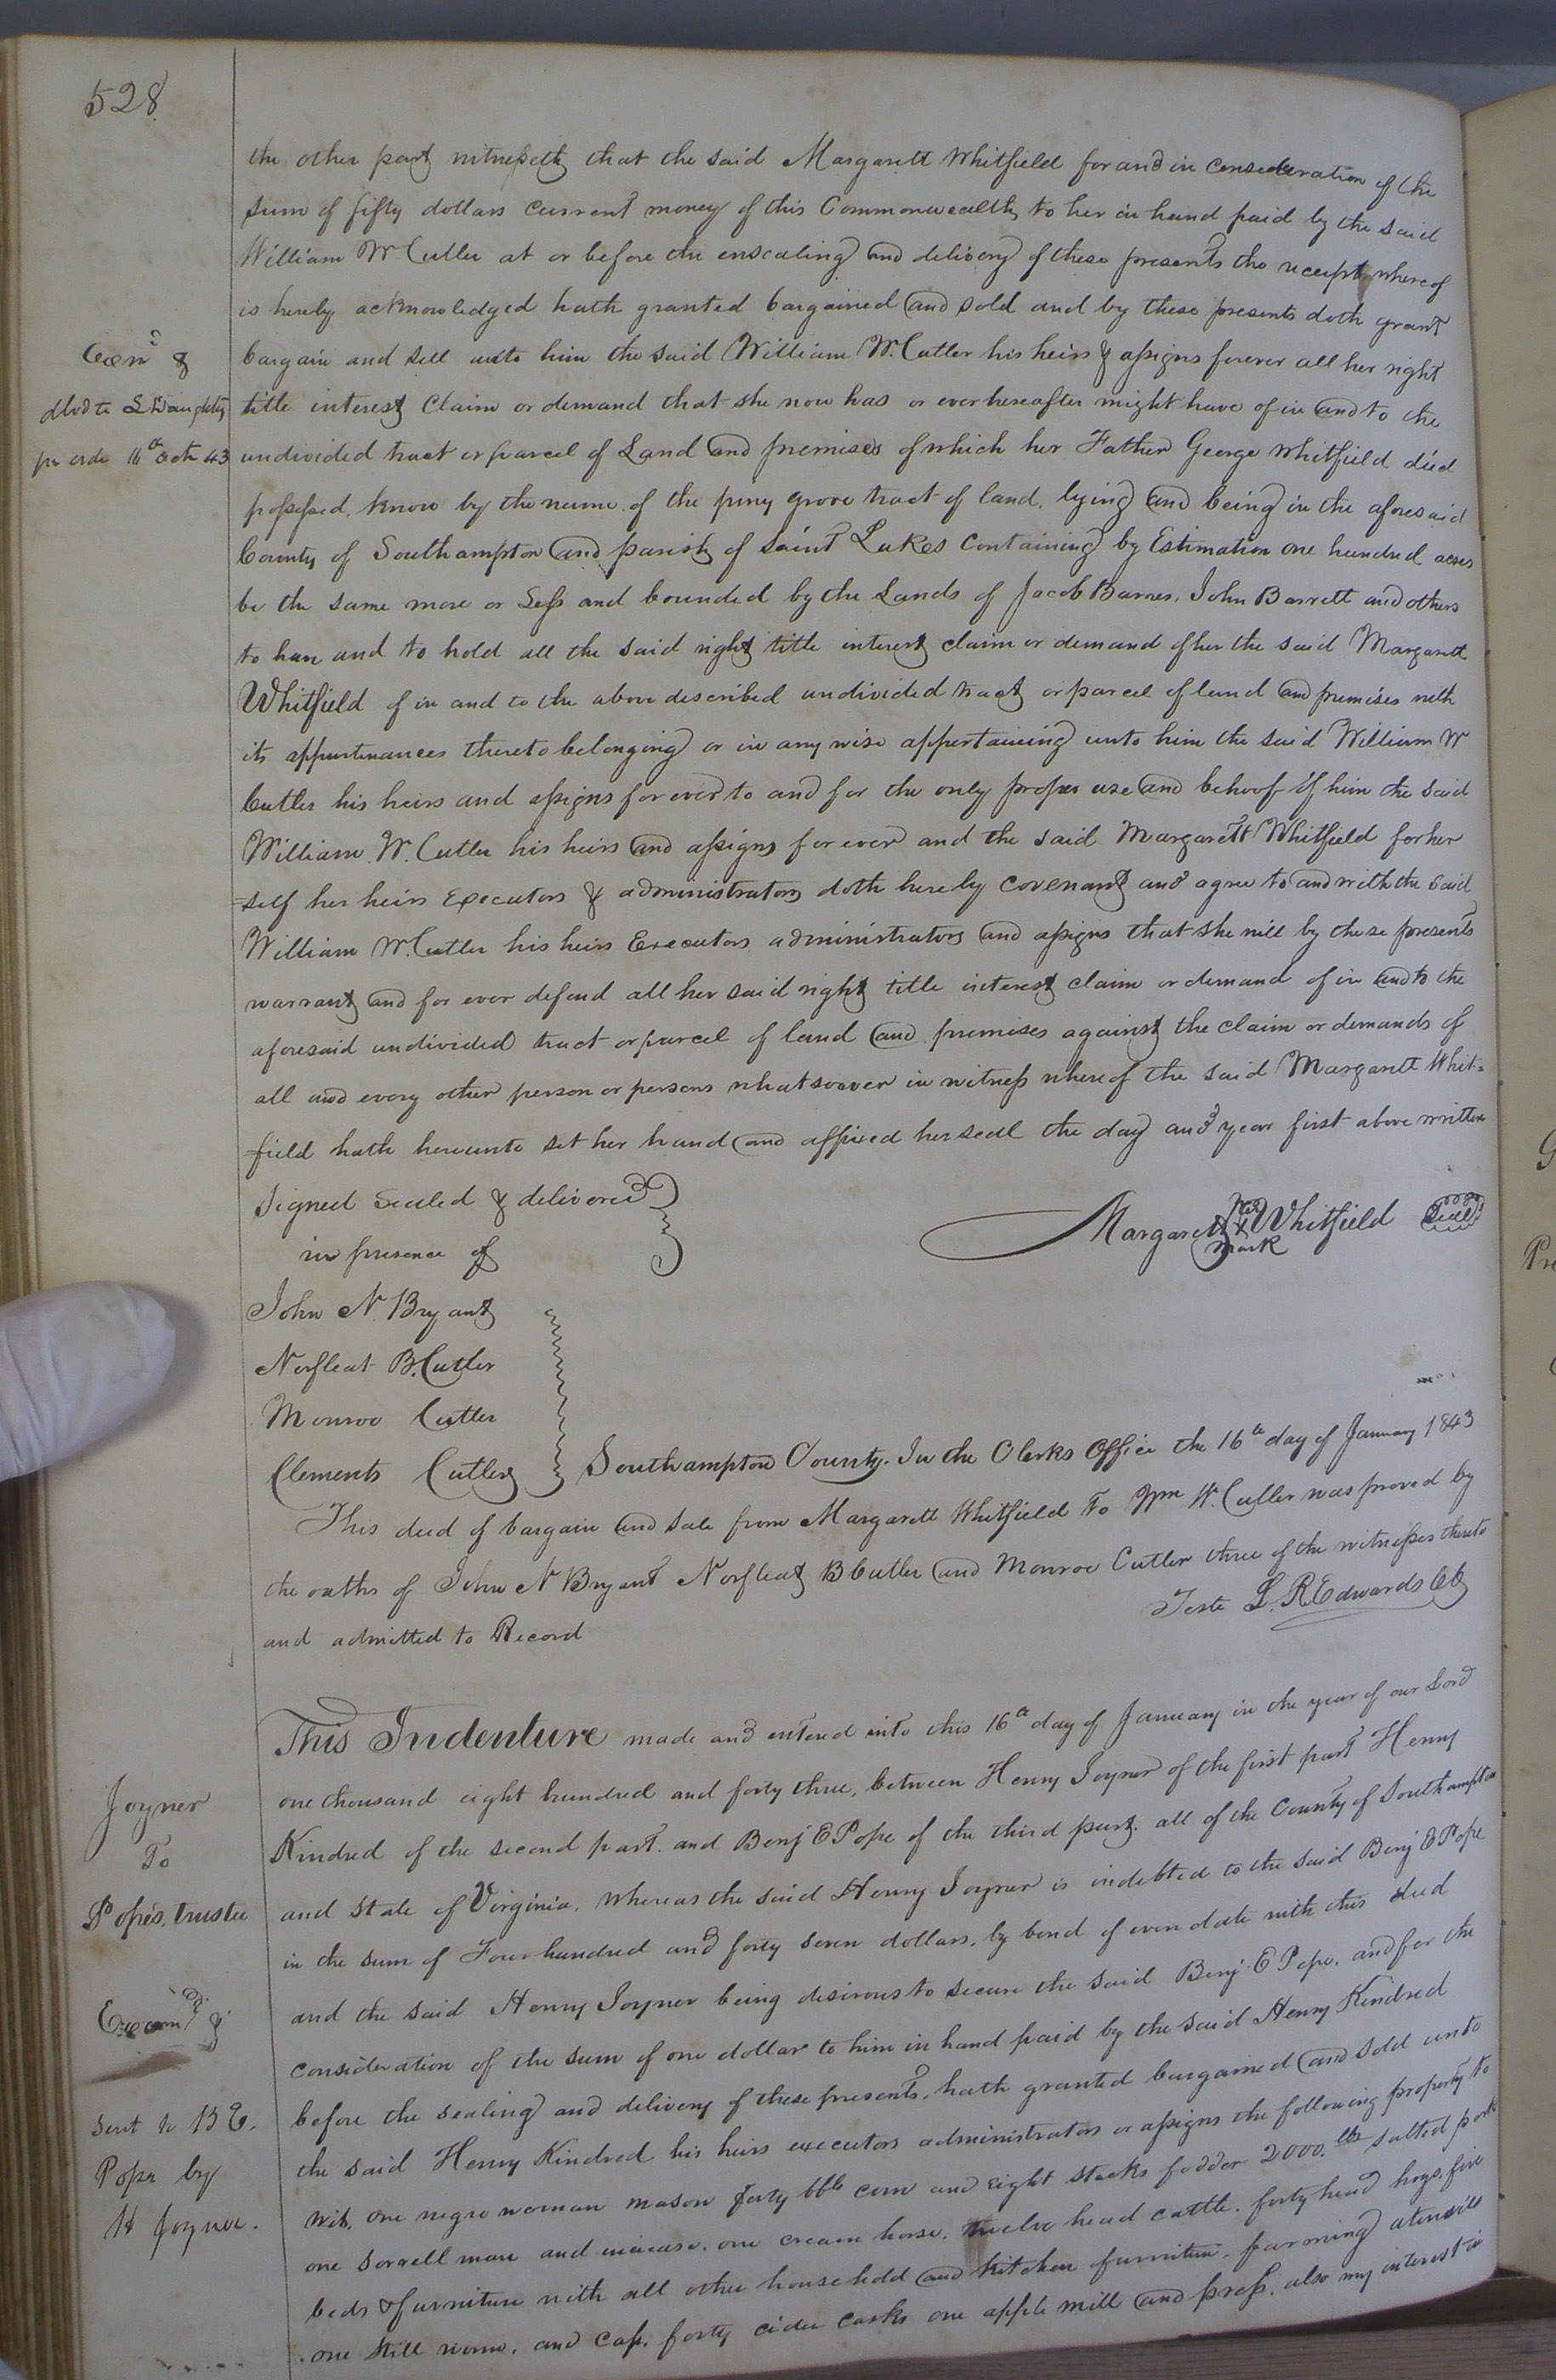 528
the other part witnesseth that the said Margarett Whitfield for and in consideration of the
sum of fifty dollars current money of this Commonwealth to her in hand paid by the said
William W Cutler at or before the ensealing and delivery of these presents the receipt whereof
is hereby acknowledged hath granted bargained and sold and by these presents doth grant
bargain and sell unto him the said William W. Cutler his heirs & assigns forever all her right
title interest claim or demand that she now has or ever hereafter might have of in and to the
undivided tract or parcel of Land and premises of which her Father George Whitfield died
possessed, know by the name of the piny grove tract of land, lying and being in the aforesaid
County of Southampton and parish of Saint Lukes containing by Estimation one hundred acres
be the same more or Less and bounded by the Lands of Jacob Barnes, John Barrett and others
to have and to hold all the said right title interest claim or demand of her the said Margarett
Whitfield of in and to the above described undivided tract or parcel of land and premises with
its appurtenances thereto belonging or in any wise appertaining unto him the said William W
Cutler his heirs and assigns forever to and for the only proper use and behoof of him the said
William W. Cutler his heirs and assigns for ever and the said Margarett Whitfield for her
=self her heirs Executors & administrators doth hereby covenant and agree to and with the said
William W. Cutler his heirs Executors administrators and assigns that she will by these presents
warrant and for ever defend all her said right title interest claim or demand of in and to the
aforesaid undivided tract or parcel of land and premises against the claim or demands of
all and every other person or persons whatsoever in witness whereof the said Margarett Whit=
field hath hereunto set her hand and affixed her seal the day and year first above written
Signed sealed & delivered
in presence of
Margarett her X mark Whitfield Seal
John N Bryant
Norfleat B. Cutler
Monroe Cutler
Clements Cutler
Southampton County. In the Clerks Office the 16th day of January 1843
This deed of bargain and sale from Margarett Whitfield To Wm W. Cutler was proved by
the oaths of John N Bryant Norfleat B Cutler and Monroe Cutler three of the witnesses thereto
and admitted to Record
Teste L. R. Edwards CC
Exnd &
dlvd to
pr order 11th Octr 43
This Indenture made and entered into this 16th day of January in the year of our Lord
one thousand eight hundred and forty three, between Henry Joyner of the first part Henry
Kindred of the second part. and Benj E Pope of the third part. all of the County of Southampton
and State of Virginia, Whereas the said Henry Joyner is indebted to the said Benj E Pope
in the sum of Four hundred and forty seven dollars, by bond of even date with this deed
and the said Henry Joyner being desirous to secure the said Benj. E Pope. and for the
consideration of the sum of one dollar to him in hand paid by the said Henry Kindred
before the sealing and delivery of these presents, hath granted bargained and sold unto
the said Henry Kindred his heirs executors administrators or assigns the following property to
wit, one negro woman mason forty bbls corn and eight stacks fodder 2000. lbs salted pork
one sorrell mare and increase. one cream horse. twelve head cattle. forty head hogs, five
beds & furniture with all other household and kitchen furniture. farming utensils
one still worm. and cap. forty cider casks one apple mill and press. also my interest in
Joyner
To
Popes, trustee
Examd &
sent to B E.
Pope by
H Joyner.